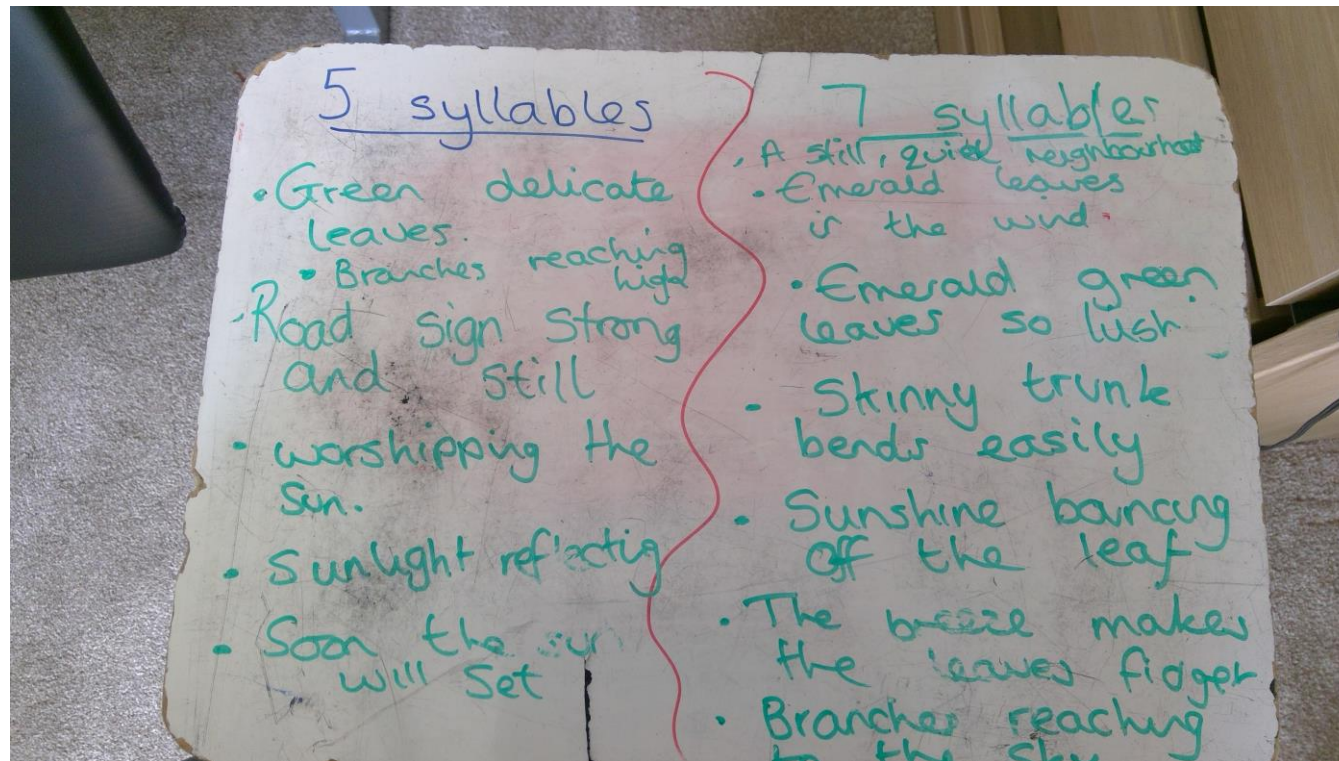 5 syllables
• Green delicate
leaves.
• Branches reaching
high
• Road sign strong
and still
• worshipping the
sun.
• Sunlight reflectig
• Soon the sun
will set
7 syllables
• A still, quiet neighbourhood
• Emerald leaves
in the wind.
• Emerald green
leaves so lush
• Skinny trunk
bends easily
• Sunshine bouncing
off the leaf
• The breeze makes
the leaves fidget
• Branches reaching
to the sky